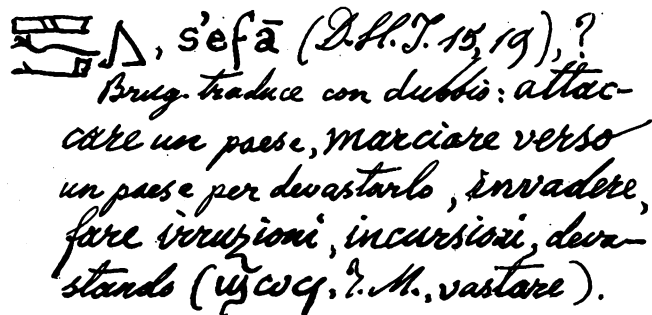 , s'efā (D.H.I. 15, 19), ?
Brug. traduce con dubbio: attac-
care un paese, marciare verso
un paese per devastarlo, invadere,
fare irruzioni, incursioni, deva-
stando (vastare).